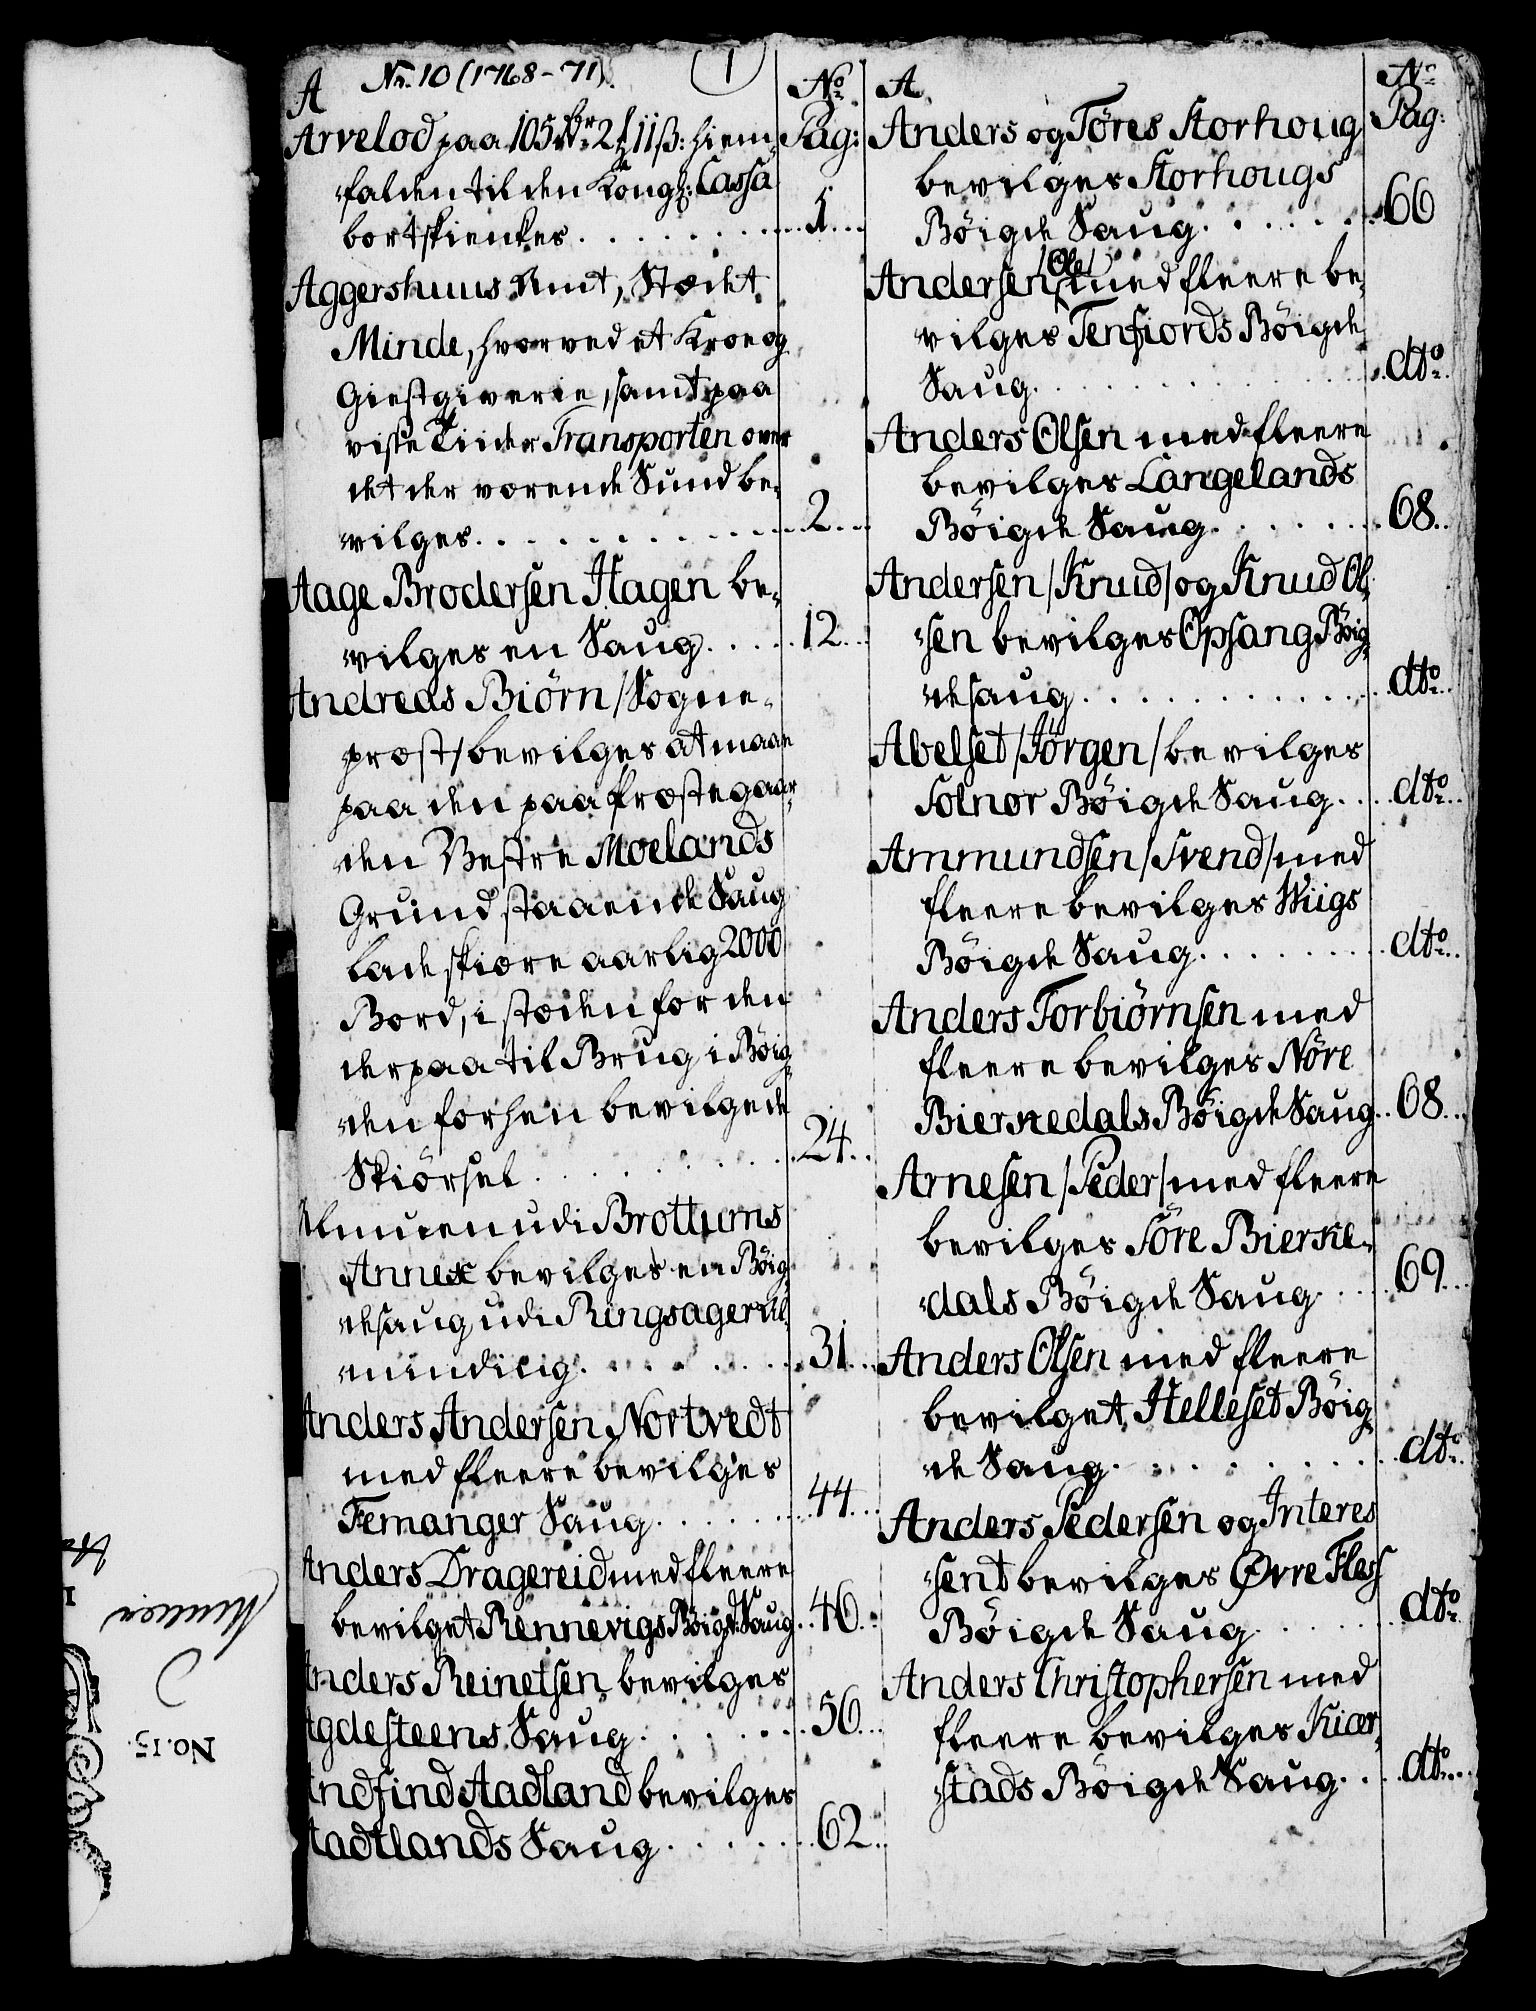 Nr. 10 (1768-71).
1
A
No
Pag:
Arvelod paa 105 Rdr 2 11 ß: hiem-
falden til den Kongl: Cassa
bortskienkes . . . . . . . 1 . . .
Aggershuus Amt, Stædet
Minde, hvorved et Kroe og
Giestgiverie, samt paa
visse Tiider Transporten over
det der værende Sund be-
vilges . . . . . . . . 2 . . .
Aage Brodersen Hagen be-
vilges en Saug . . . . 12 . . .
Andreas Biørn /Sogne-
præst/ bevilges at maae
paa den paa Præstegaar-
den Vestre Moelands
Grund staaende Saug
lade skiære aarlig 2000
Bord, i stæden for den
derpaa til Brug i Böig-
den forhen bevilgede
Skiörsel . . . . . . . 24 . .
Almuen udi Brottums
Annex bevilges en Böig-
desaug udi Ringsager Al-
mindig . . . . . . . 31 . . .
Anders Andersen Nortvedt
med fleere bevilges
Femanger Saug . . . . . 44 . . .
Anders Dragereid med fleere
bevilget Rennevigs Böigd: Saug . . 46 . .
Anders Reinetsen bevilges
Agdesteens Saug . . . . . 56 . . .
Andfind Stadland bevilges
Stadtlands Saug . . . . . 62 . .
A
No
Pag:
Anders og Töres Storhoug
bevilges Storhougs
Böigde Saug . . . . . . 66
Andersen /Ole/ med fleere be-
vilges Tenfiords Böigde
Saug . . . . . . . . dto
Anders Olsen med fleere
bevilges Langelands
Böigde Saug . . . . . . 68 . .
Andersen /Knud/ og Knud Ol-
sen bevilges Opsang Böig-
desaug . . . . . . . dto . .
Abelset /Jörgen/ bevilges
Solnor Böigde Saug . . . dto . .
Ammundsen /Svend/ med
fleere bevilges Wiigs
Böigde Saug . . . . . . dto . .
Anders Torbiörnsen med
fleere bevilges Nöre
Bierkedals Böigde Saug . . 68 . .
Arnesen /Peder/ med fleere
bevilges Söre Bierke-
dals Böigde Saug . . . . 69 . . .
Anders Olsen med fleere
bevilget Helleset Böig-
de Saug . . . . . . . dto .
Anders Pedersen og Interes
sent bevilges Øvre Fless
Böigde Saug . . . . . . dto
Anders Christophersen med
fleere bevilges Kiær-
stads Böigde Saug . . . dto . . .
No. 15.